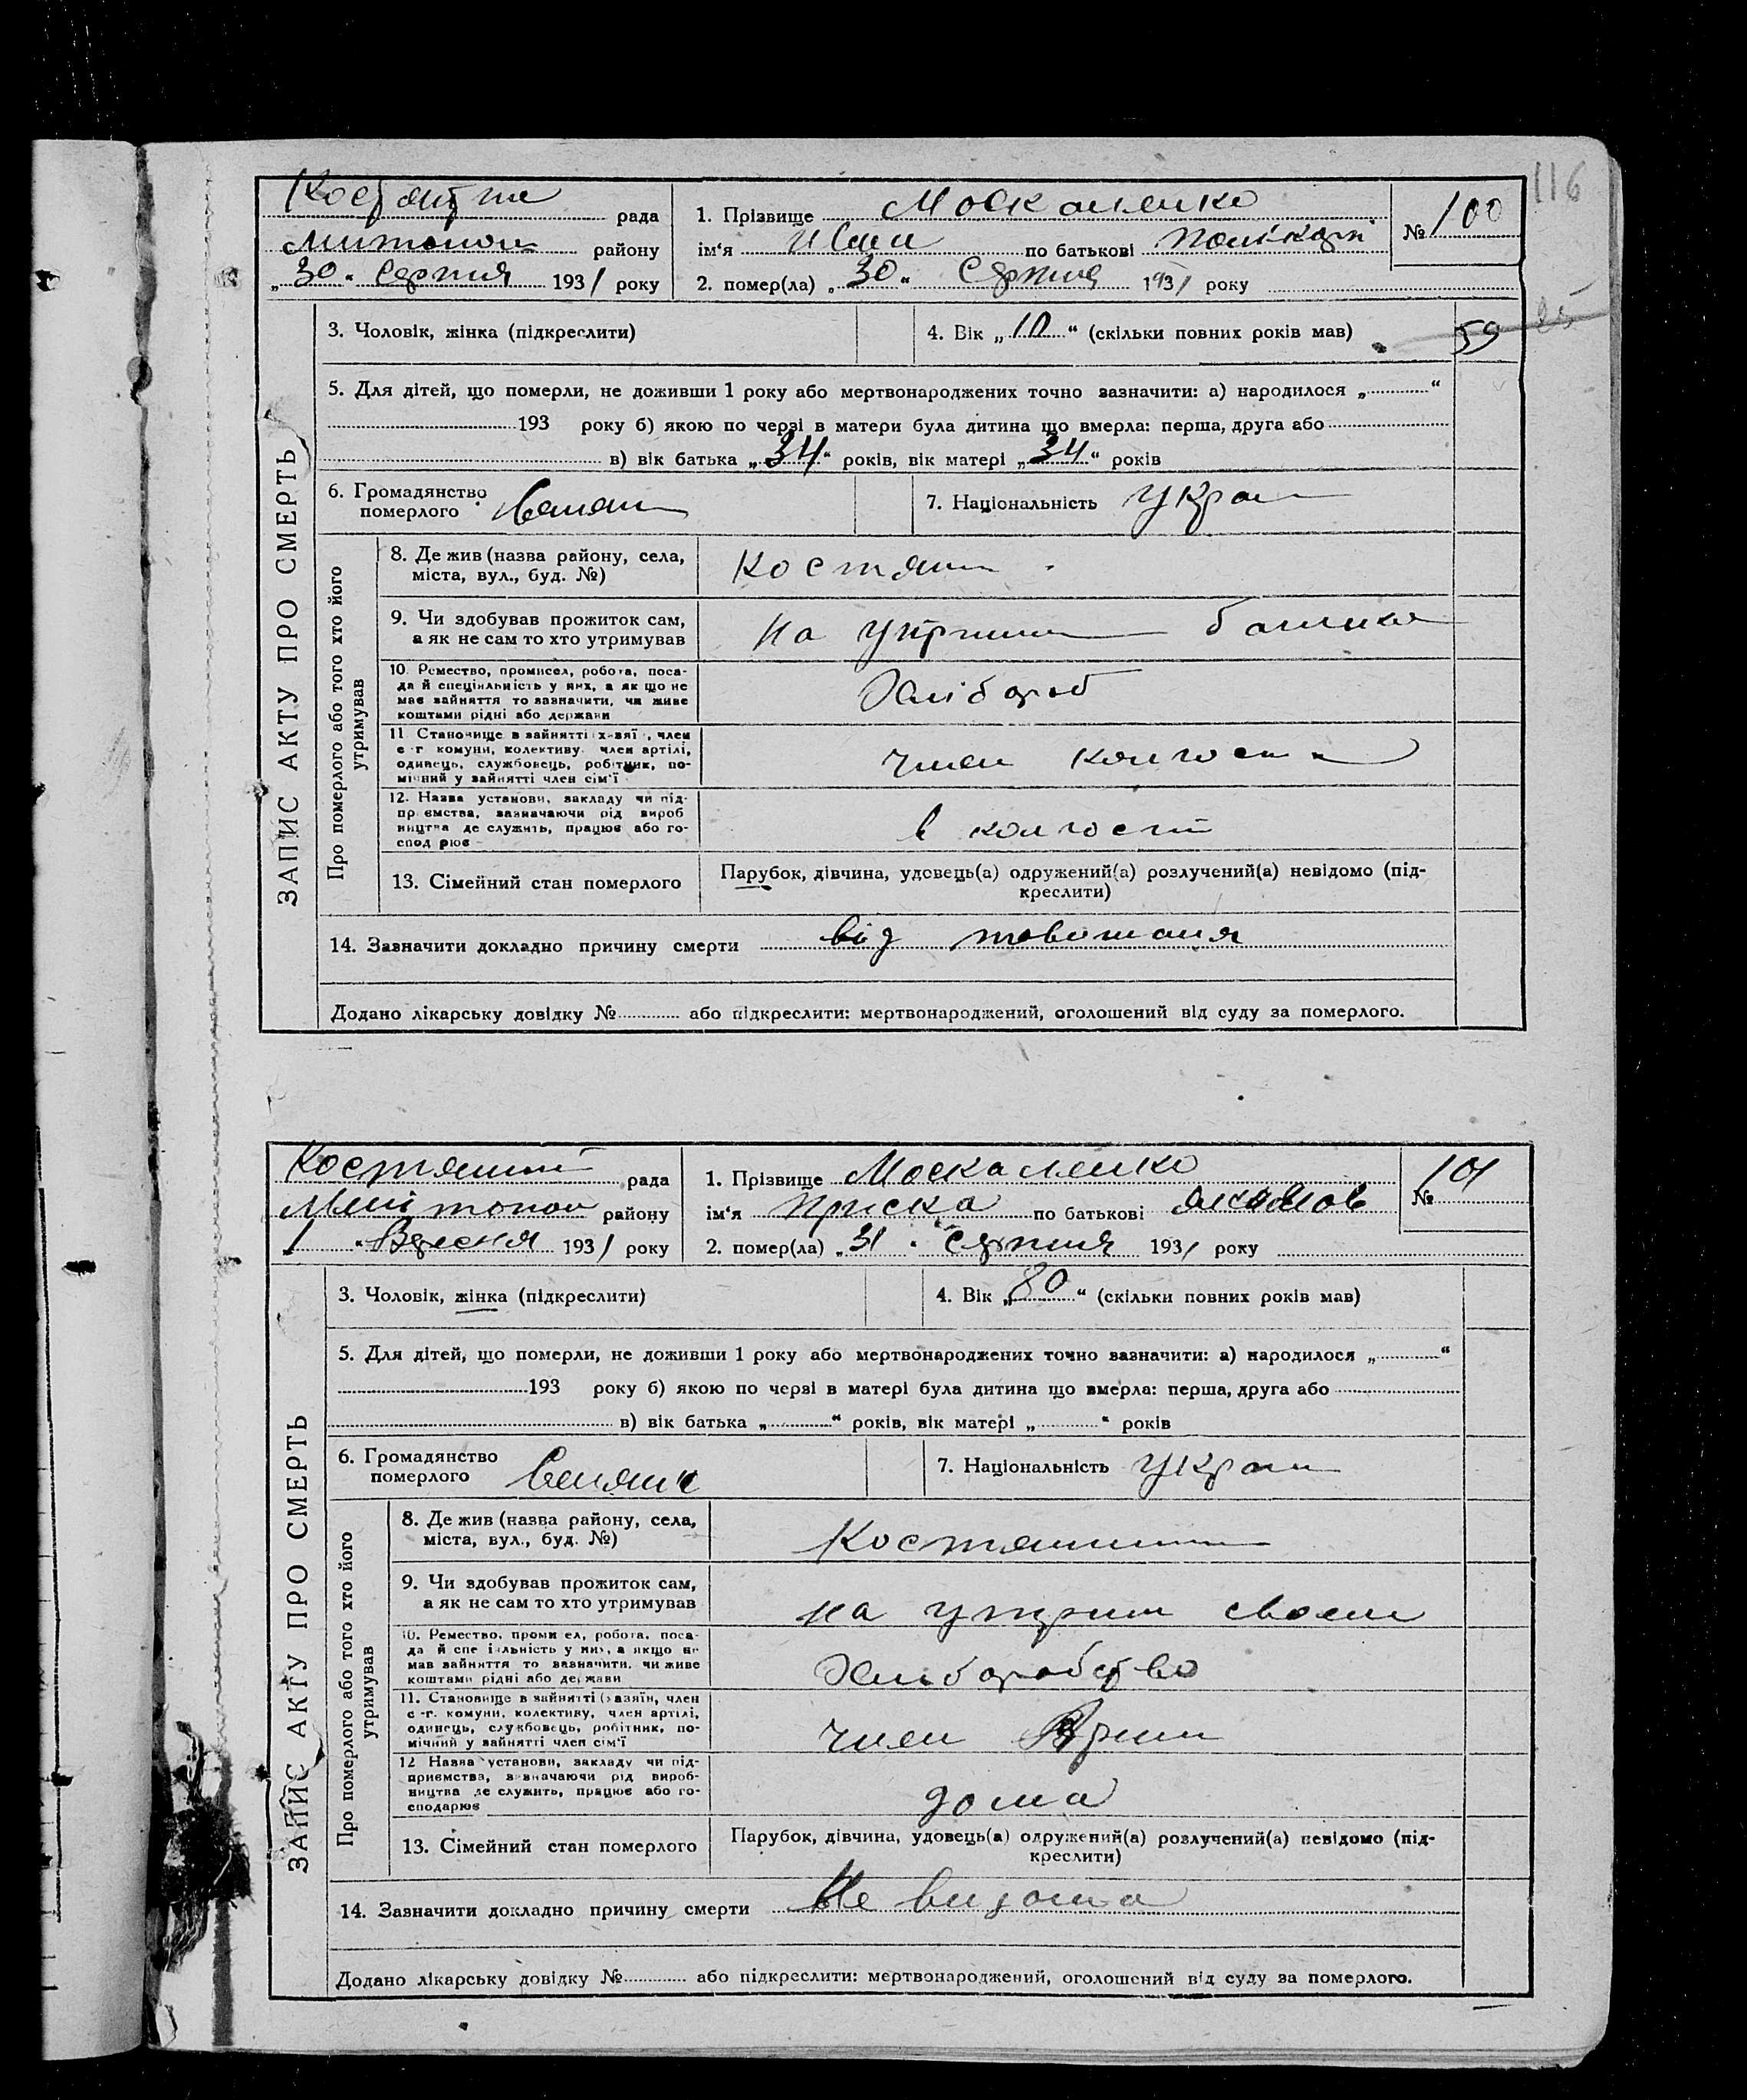 116
рада
району
„30“ Серпня 1931 року
1. Прізвище Москаленко
ім‘я по батькові
2. помер(ла) „30“ Серпня 1931 року
№ 100
3. Чоловік, жінка (підкреслити)
4. Вік „10“ (скільки повних років мав)
59
25
5. Для дітей, що померли, не доживши 1 року або мертвонароджених точно зазначити: а) народилося „ “
193 року б) якою по черзі в матери була дитина що вмерла: перша, друга або
в) вік батька „34“ років, вік матері „34“ років
6. Громадянство
померлого
7. Національність Украï
ЗАПИС АКТУ ПРО СМЕРТЬ
Про померлого або того хто його
утримував
8. Де жив (назва району, села,
міста, вул., буд. №)
Костян
9. Чи здобував прожиток сам,
а як не сам то хто утримував
на утрим батька
10. Ремество, промисел, робота, поса-
да й спеціяльність у них, а як що не
має зайняття то зазначити, чи живе
коштами рідні або держави
Хлібороб
11. Становище в зайнятті (х-зяї, член
с-г комуни, колективу, член артілі,
одинець, службовець, робітник, по-
мічний у зайнятті член сім‘ї
член колгосп
12. Назва установи, закладу чи під-
приємства, зазначаючи рід вироб
ництва де служить, працює або го-
спод рює
в колгоспі
13. Сімейний стан померлого
Парубок, дівчина, удовець(а) одружений(а) розлучений(а) невідомо (під-
креслити)
14. Зазначити докладно причину смерти від
Додано лікарську довідку № або підкреслити: мертвонароджений, оголошений від суду за померлого.
рада
району
1 “ Вересня 1931 року
1. Прізвище Москаленко
ім‘я Приска по батькові Якимов
2. помер(ла) „31 “ Серпня 1931 року
№ 101
3. Чоловік, жінка (підкреслити)
4. Вік „80“ (скільки повних років мав)
5. Для дітей, що померли, не доживши 1 року або мертвонароджених точно зазначити: а) народилося „ “
193 року б) якою по черзі в матері була дитина що вмерла: перша, друга або
в) вік батька „ “ років, вік матері „ “ років
6. Громадянство
померлого
Селянк
7. Національність Украï
ЗАПИС АКТУ ПРО СМЕРТЬ
Про померлого або того хто його
утримував
8. Де жив (назва району, села,
міста, вул., буд. №)
Костян
9. Чи здобував прожиток сам,
а як не сам то хто утримував
на утрим своем
10. Ремество, промисел, робота, поса-
да й спеціяльність у них, а якщо не
мав зайняття то зазначити, чи живе
коштами рідні або держави
Хліборобство
11. Становище в зайнятті (хазяїн, член
с-г. комуни, колективу, член артілі,
одинець, службовець, робітник, по-
мічний у зайнятті член сім‘ї
член
12 Назва установи, закладу чи під-
приємства, зазначаючи рід вироб-
ництва де служить, працює або го-
сподарює
дома
13. Сімейний стан померлого
Парубок, дівчина, удовець(а) одружений(а) розлучений(а) невідомо (під-
креслити)
14. Зазначити докладно причину смерти Не видома
Додано лікарську довідку № або підкреслити: мертвонароджений, оголошений від суду за померлого.